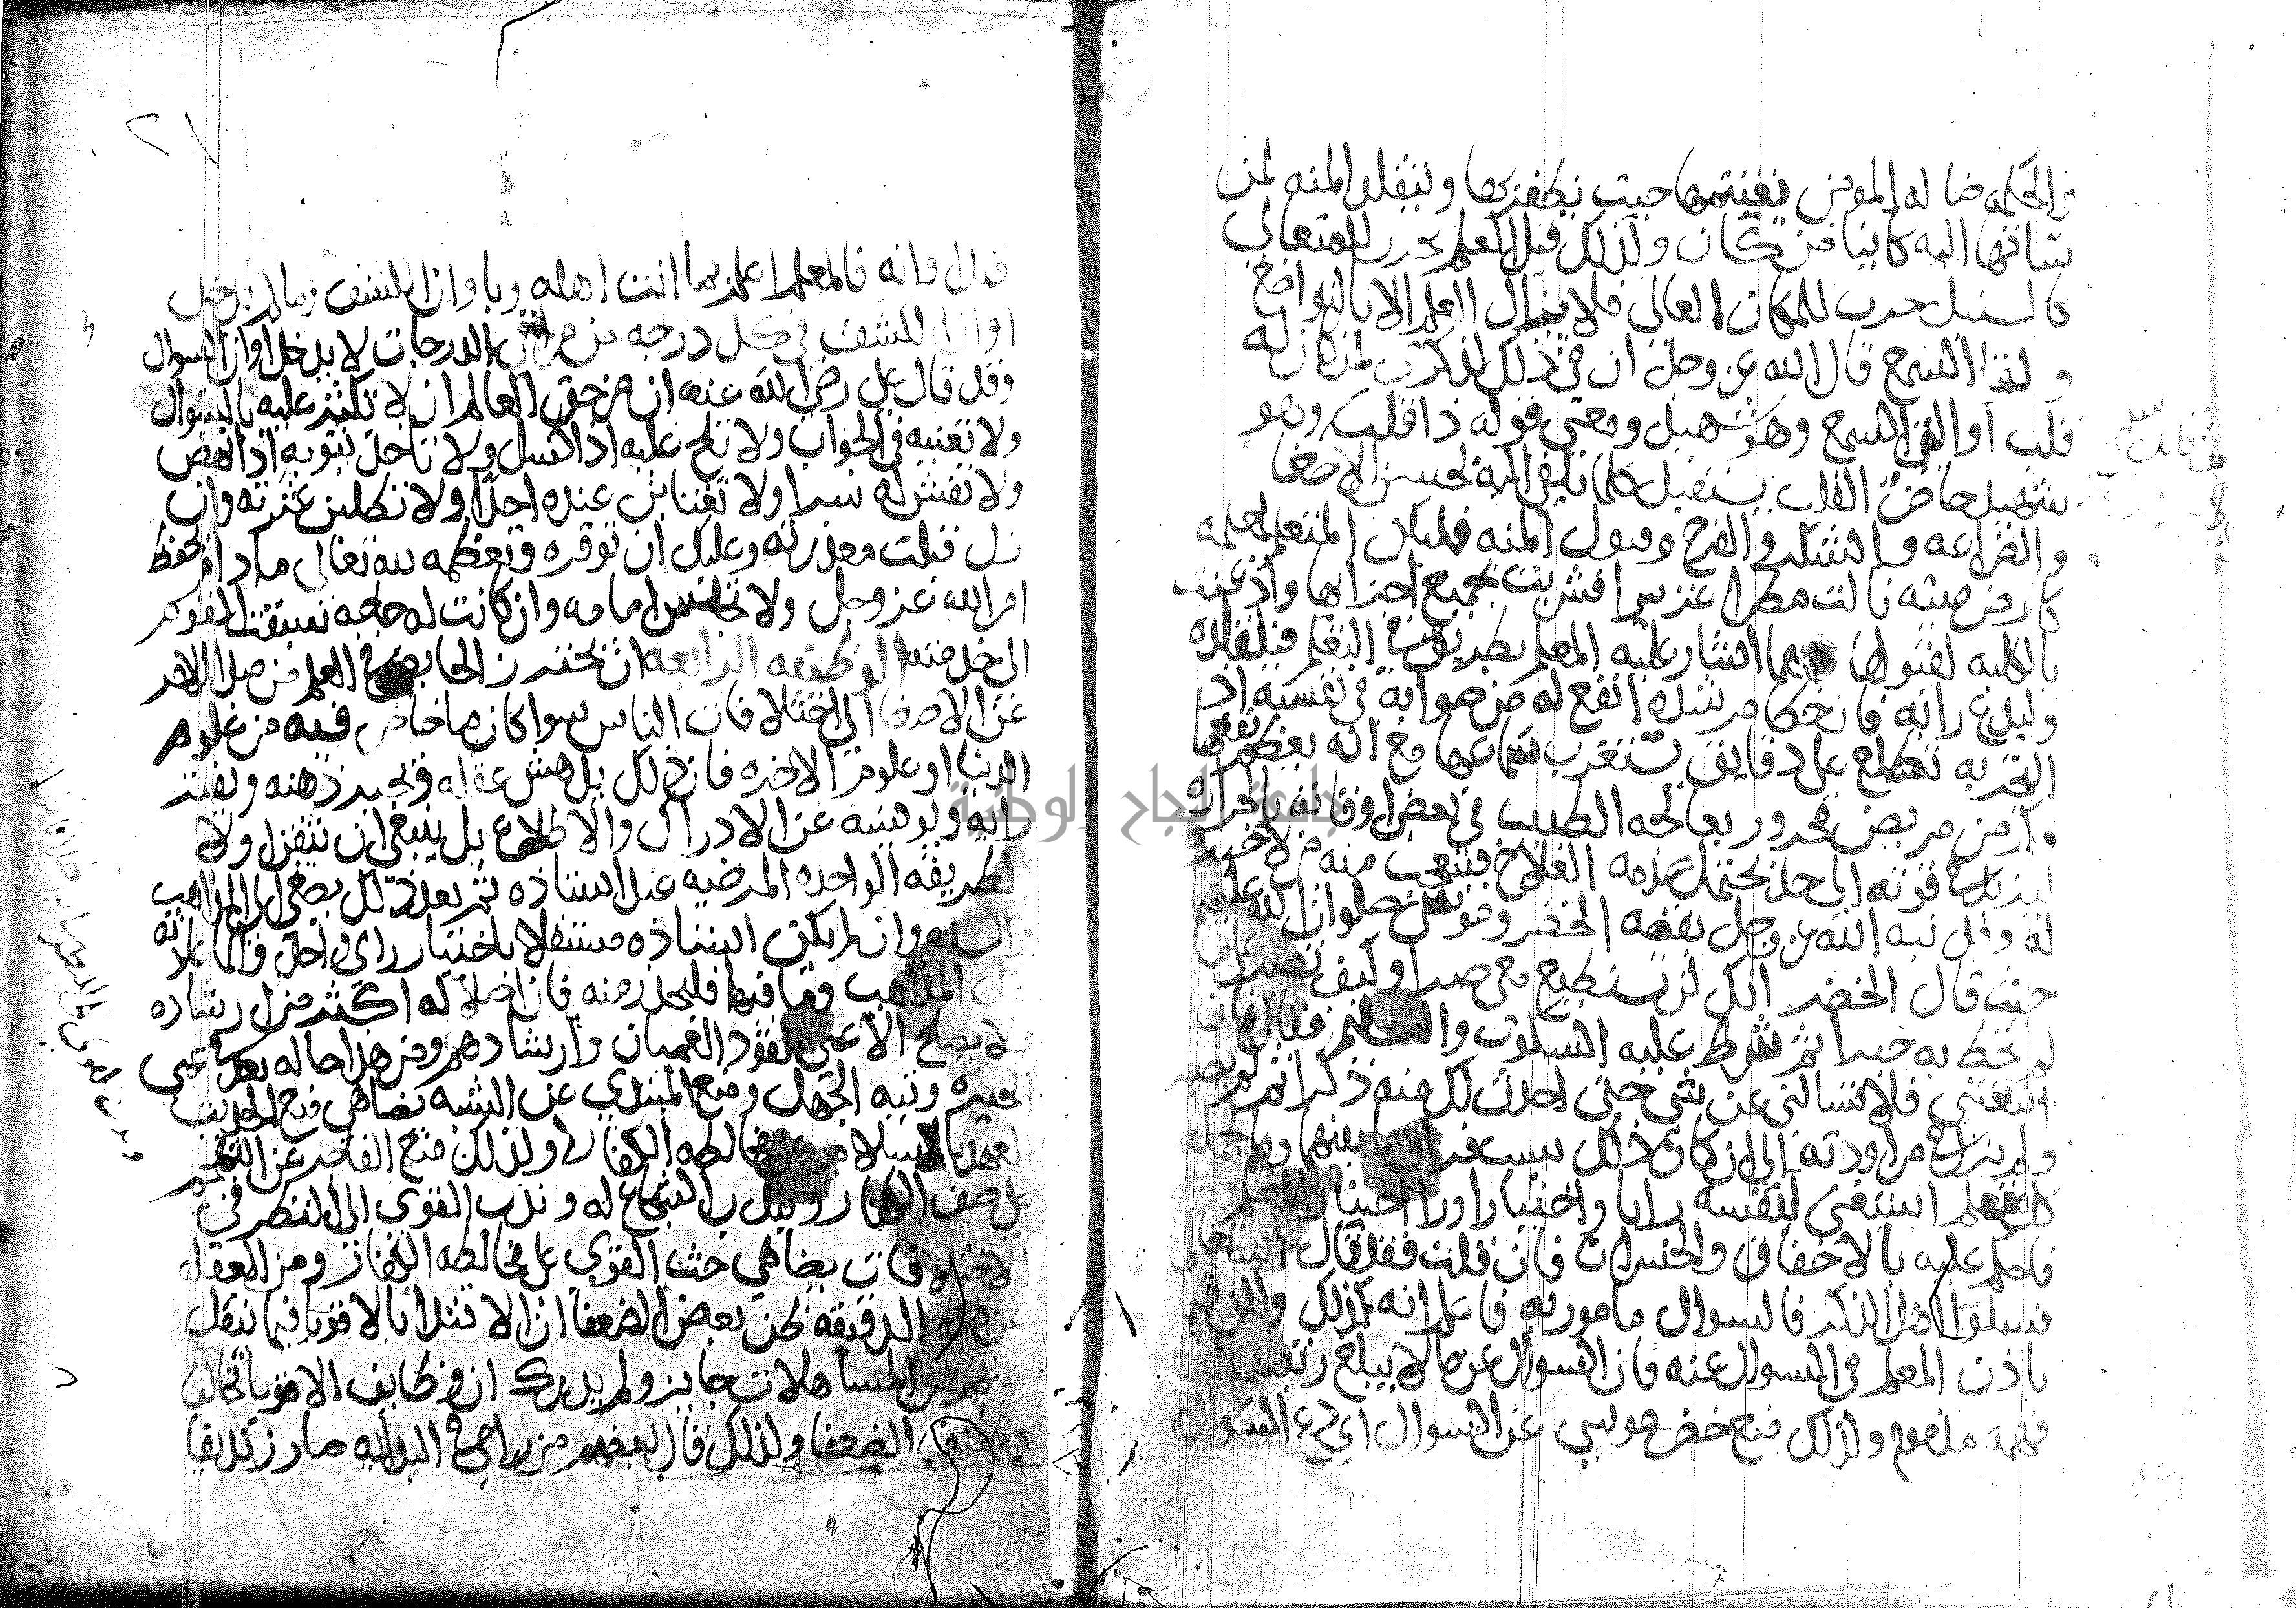 فالحكمه ضاله المومن يغتنمها حيث يظفر بها ويتقلد المنه لمن
ساقها اليه كاينا من كان ولذلك قيل العلم حرب للمتعالي
كالسيل حرب للمكان العالي فلا ينال العلم الا بالتواضع
والقا السمع قال الله عز وجل ان في ذلك لذكرى لمن كان له
قلب او القى السمع وهو شهيد ومعنى قوله ذا قلب وهو
شهيد حاضر القلب يستقبل كلما يلقى اليه بحسن الاصغا
والضراعه والشكر والفرح وقبول المنه فليكن المتعلم لمعلمه
كارض ميته نالت مطرا غزيرا فشربت بجميع اجزايها واذعنت
بالكليه لقبوله مهما اشار عليه المعلم بطريق في التعلم فليقلده
وليدع رايه فان خطا مرشده انفع له من صوابه في نفسه اذ
التجربه تطلع على دقايق تستغرب سماعها مع انه يعظم نفعها
فكم من مريض محرور يعالجه الطبيب في بعض اوقاته بالحراره
ليزيد في قوته الى حد يحتمل صدمه العلاج فيتعجب منه من لا خبره
له وقد نبه الله عز وجل بقصه الخضر وموسى صلوات الله عليهم
حيث قال الخضر انك لن تستطيع معي صبرا وكيف تصبر على ما
لم تحط به خبرا ثم شرط عليه السكوت والتسليم فقال فان
اتبعتني فلا تسالني عن شي حتى احدث لك منه ذكرا ثم لم يصبر
ولم يزل في مراودته الى ان كان ذلك سبب فراق ما بينهما وبالجمله
كل متعلم استبقى لنفسه رايا واختيارا ورا اختيار المعلم
فاحكم عليه بالاخفاق والخسران فان قلت فقد قال الله تعالى
فسلوا اهل الذكر فالسوال مامور به فاعلم انه كذلك ولكن فيما
ياذن المعلم في السوال عنه فان السوال عن ما لا يبلغ رتبتك الى
فهمه مذموم ولذلك منع خضر موسى عن السوال اي دع السوال
٢٧
قبل اوانه فالمعلم اعلم بما انت اهله وباوان الكشف وما لم يدخل
اوان الكشف في كل درجه من مراقي الدرجات لا يدخل اوان السوال
وقد قال علي رضي الله عنه ان من حق العالم ان لا تكثر عليه بالسوال
ولا تعنته في الجواب ولا تلح عليه اذا كسل ولا تاخذ بثوبه اذا نهض
ولا تفش له سرا ولا تغتابن عنده احدا ولا تطلبن عثرته وان
زل قبلت معذرته وعليك ان توقره وتعظمه لله تعالى ما دام يحفظ
امر الله عز وجل ولا تجلس امامه وان كانت له حاجه سبقت القوم
الى خدمته الوظيفه الرابعه ان يحترز الخايض في العلم من صدا الامر
عن الاصغا الى اختلافات الناس سوا كان ما خاض فيه من علوم
الدنيا او علوم الاخره فان ذلك يدهش عقله ويحير ذهنه ويفتر
رايه ويوهنه عن الادراك والاطلاع بل ينبغي ان يتقن اولا
لطريقه الواحده المرضيه عند استاذه ثم بعد ذلك يصغي الى المذاهب
والشبه وان لم يكن استاذه مستقلا باختيار راي واحد وانما عادته
نقل المذاهب وما فيها فليحذر منه فان اضلاله اكثر من ارشاده
ولا يصلح الاعمى لقود العميان وارشادهم ومن هذا حاله يعد في عمى
الحيره وتيه الجهل ومنع المبتدي عن الشبه يضاهي منع الحديث
العهد بالاسلام عن مخالطه الكفار ولذلك منع الفاجر عن التهجم
على صف الكفار وندب الشجاع له وندب القوي الى النظر في
الاختلافات يضاهي حث القوي على مخالطه الكفار ومن الغفله
عن هذه الدقيقه ظن بعض الضعفا ان الاقتدا بالاقويا فيما ينقل
عنهم من المساهلات جايز ولم يدرك ان وظايف الاقويا تخالف
وظايف الضعفا ولذلك قال بعضهم من راني في البدايه صار زنديقا
جامعة النجاح الوطنية